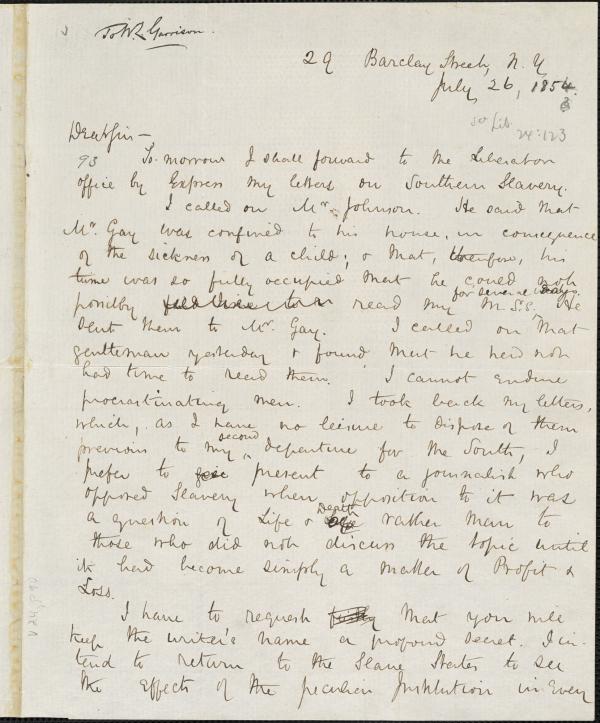 To W L Garrison.
29 Barclay Street, N. Y.
July, 26, 1854.
3
Dear Sir —
24:123
93 To-morrow I shall forward to the Liberator
office by Express my letters on Southern Slavery.
I called on Mr. Johnson. He said that
Mr. Gay was confined to his house, in consequence
of the sickness of a child; & that, therefore, his
time was so fully occupied that he could not
for several days.
possibly read my M.S.S. He
sent them to Mr. Gay. I called on that
gentleman yesterday & found that he had not
had time to read them. I cannot endure
procrastinating men. I took back my letters,
which, as I have no leisure to dispose of them
previous to my second departure for the South, I
prefer to present to a journalist who
opposed Slavery when opposition to it was
a question of Life & Death rather than to
those who did not discuss the topic until
it had become simply a matter of Profit &
Loss.
I have to request that you will
keep the writer's name a profound secret. I in-
tend to return to the Slave States to see
the effects of the peculiar Institution in every